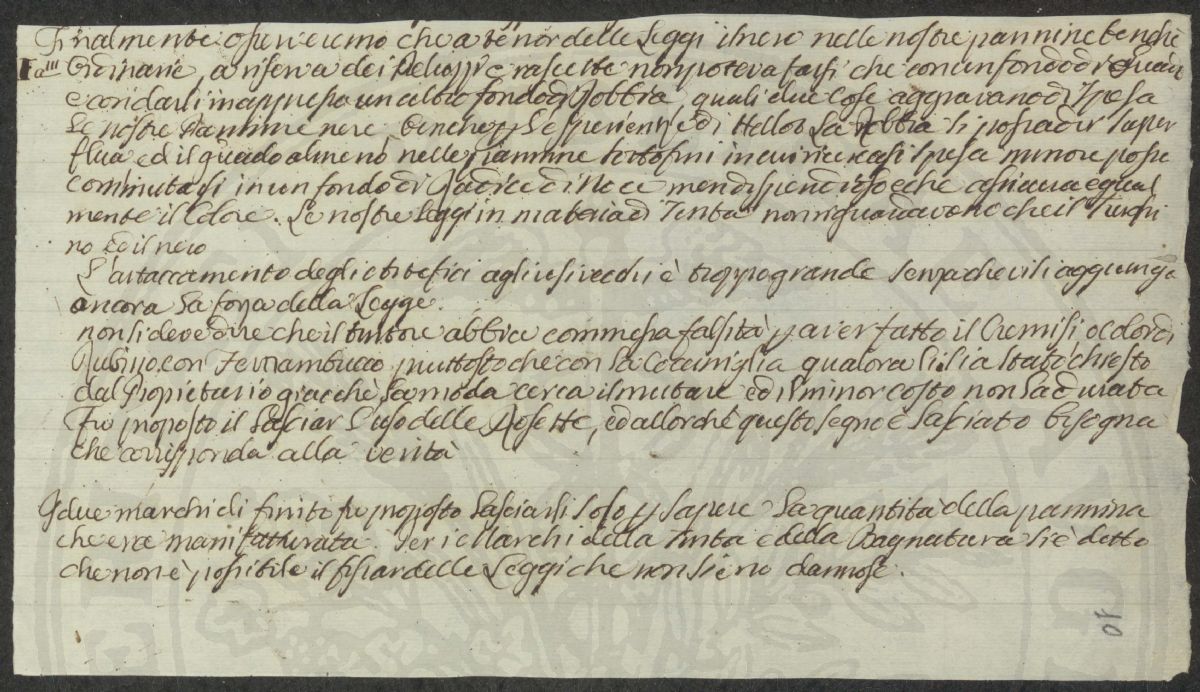 Finalmente osserveremo che a tenor delle Leggi il nero nelle nostre pannine benchè
Ordinarie, a riserva dei Peluzzi e rascette non poteva farsi che con un fondo di Guado
e con darli in appresso un altro fondo di Robbia, quali due cose aggravano di spesa
le nostre Pannine nere, benche p le esperienze di Hellot la Robbia si possa dir super
flua ed il guado almeno nelle pannine sottofini in cui ricercasi spesa minore possa
commutarsi in un fondo di Radice di Noce men dispendioso e che assicura egual
mente il Colore. Le nostre Leggi in materia di Tinta non riguardavano che il Turchi
no ed il nero
L'attaccamento degli Artefici agli usi vecchi è troppo grande senza che vi si aggiunga
ancora la forza della Legge.
non si deve dire che il tintore abbia commessa falsità p aver fatto il Cremisi o Color di
Rubino con Fernambucco piuttosto che con la Cocciniglia qualora li sia stato chiesto
dal Proprietario giacchè la moda cerca il mutare ed il minor costo non la durata
Fu proposto il lasciar l'uso delle Rosette, ed allorchè questo segno è lasciato bisogna
che corrisponda alla verità
I due marchi di finito fu proposto lasciarli solo p sapere la quantità della pannina
che era manifatturata. Per i Marchi della Tinta e della Bagnatura si è detto
che non è possibile il fissar delle Leggi che non sieno dannose.
10